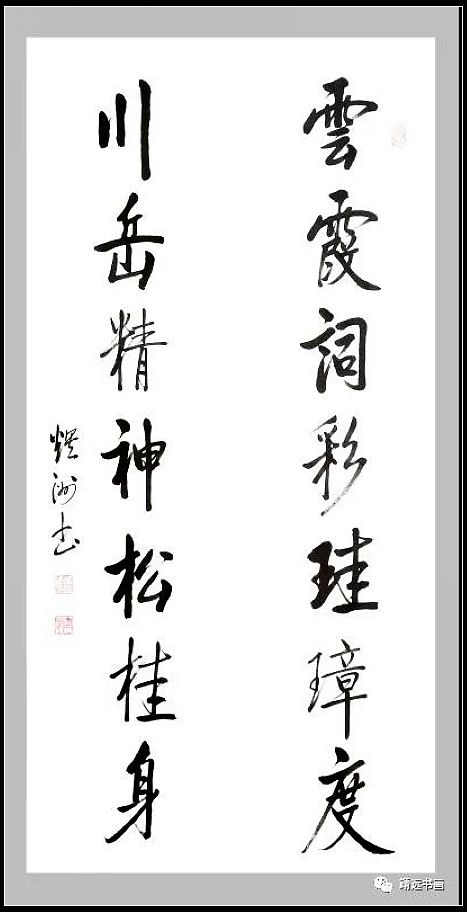 雲霞詞彩珪璋度
川岳精神松桂身
煜洲书
靖远书画